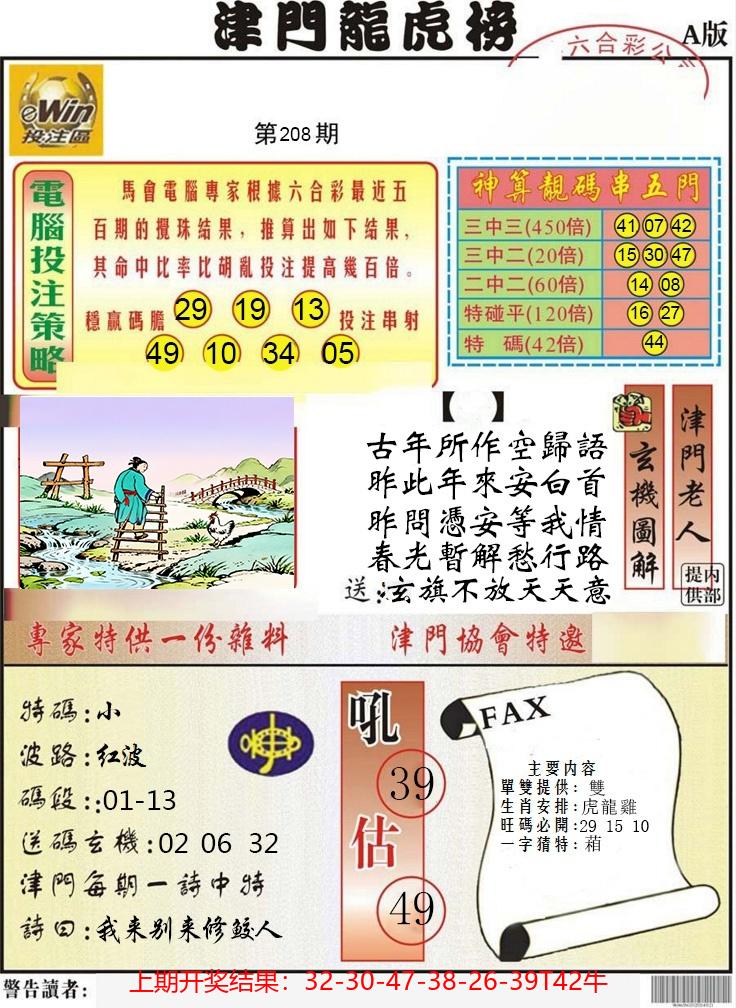 津門龍虎榜
A版
六合彩公
eWin
投注區
第208期
電腦投注策略
馬會電腦專家根據六合彩最近五
百期的攪珠结果，推算出如下结果，
其命中比率比胡亂投注提高幾百倍。
穩贏碼膽 29 19 13 投注串射
49 10 34 05
神算靚碼串五門
三中三(450倍) 41 07 42
三中二(20倍) 15 30 47
二中二(60倍) 14 08
特碰平(120倍) 16 27
特 碼(42倍) 44
【 】
古年所作空歸語
昨此年來安白首
昨問憑安等我情
春光暫解愁行路
送:玄旗不放天天意
玄機圖解
津門老人
内部提供
專家特供一份雜料
津門協會特邀
特碼:小
波路:红波
碼段::01-13
送碼玄機:02 06 32
津門每期一詩中特
詩曰:我来别来修鲛人
吼 39
估 49
FAX
主要内容
單雙提供: 雙
生肖安排:虎龍雞
旺码必開:29 15 10
一字猜特:萷
警告讀者:
上期开奖结果：32-30-47-38-26-39T42牛